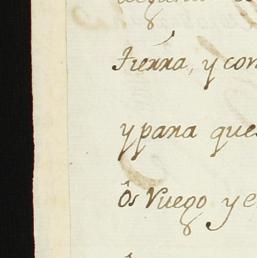 tierra, y con
y para que
os Ruego y e